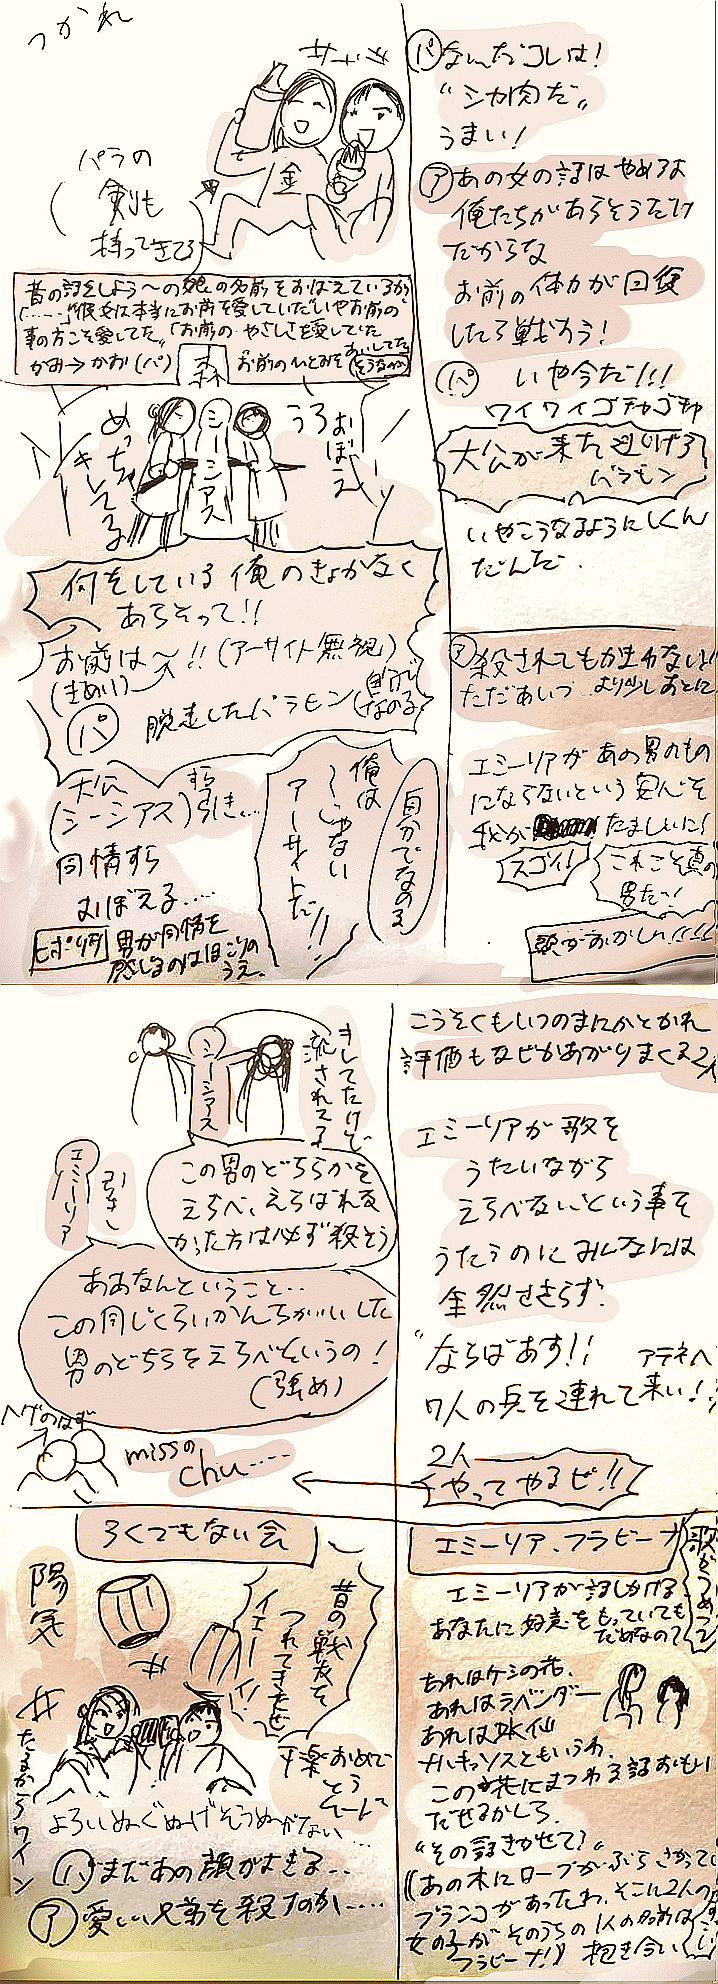 つかれ
パラの
剣も
持ってきてる
金
昔の話をしよう〜の娘の名前をおぼえているか
「……」"彼女は本当にお前を愛していた"いやお前の
事の方こそ愛してた。「お前のやさしさを愛していた
かみ→かお(パ)
お前のひとみを あいしてた
そうなのか
森
シーシアス
うろおぼえ
めっちゃキレてる
何をしている俺のきょかなく
あらそって!!
お前は〜!!(アーサイト無視)
パ 脱走したパラモン
自分でなのる
大公
(シーシアス)すら引き…
同情すら
おぼえる……
ヒポリタ 男が同情を
感じるのはほこりの
うえ。
俺は
〜じゃない
アーサイトだ!!
自分でなのる
パ なんだコレは!
"シカ肉だ"
うまい!
ア あの女の話はやめろよ
俺たちがあらそうだけ
だからな
お前の体力が回復
したら戦おう!
パ いや今だ!!!
ワイワイゴチャゴチャ
大公が来た逃げろ
パラモン
いやこうなるようにしくん
だんだ.
ア 殺されてもかまわない!!
ただあいつ より少しあとに
エミーリアがあの男のもの
にならないという安心を
我が たましいに!
スゴイ!
これこそ真の
男だっ!
頭がおかしい!!!!
シーシアス
キレてたけど
流されてる
この男のどちらかを
えらべ、えらばれな
かった方は必ず殺そう
エミーリア
引き
ああなんということ..
この同じくらいかんちがいした
男のどちらをえらべというの!
(強め)
ヘゲのはず
missの
chu……
こうそくもいつのまにかとかれ
評価もなぜかあがりまくる2人
エミーリアが歌を
うたいながら
えらべないという事を
うたうのにみんなには
全然ささらず.
"ならばあす!! アテネへ
7人の兵を連れて来い!!
2人
やってやるぜ!!
ろくでもない会
陽気
昔の戦友を
つれてきたぜ
イエーイ!!
たるからワイン
よろいぬぐぬげそうぬがない…
パ まだあの顔がよぎる..
ア 愛しい兄弟を殺すのか……
エミーリア.フラビーナ
エミーリアが話しかける
あなたに好意をもっていても
だめなの?
あれはケシの花.
あれはラベンダー
あれは水仙
ナルキッソスともいうわ.
この花にまつわる話おもい
だせるかしら.
"その話きかせて?"
((あの木にロープがぶらさがって
ブランコがあったわ.そこに2人の
女の子がそのうちの1人の名前は
フラビーナ!)) 抱き合い